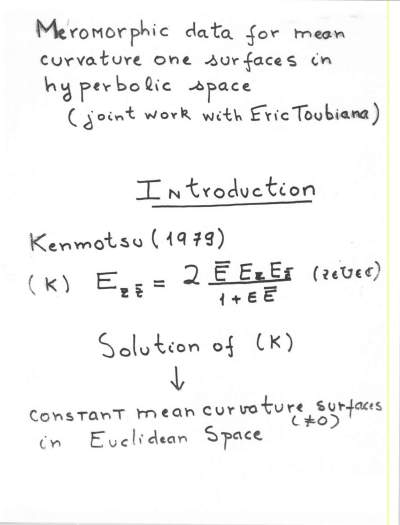 Meromorphic data for mean
curvature one surfaces in
hyperbolic space
(joint work with Eric Toubiana)
Introduction
Kenmotsu (1979)
(K) E_{z z̄} = 2 \frac{Ē E_z E_{z̄}}{1 + E Ē} (z∈U⊂ℂ)
Solution of (K)
↓
constant mean curvature surfaces
(≠0)
in Euclidean Space